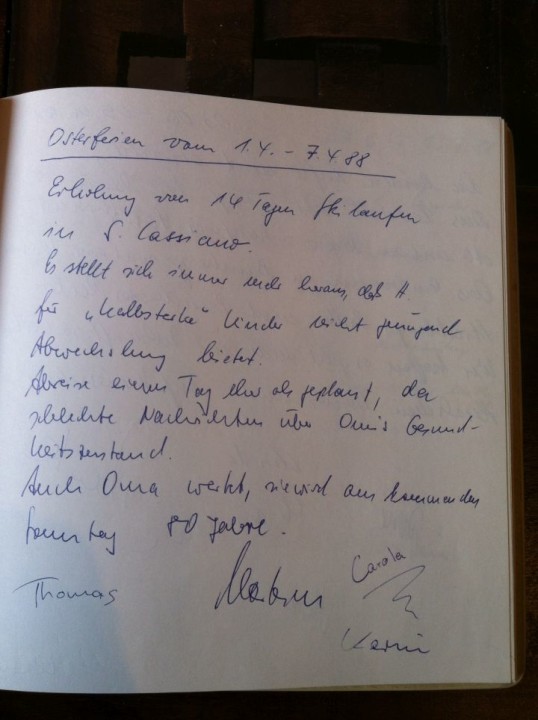 Osterferien vom 1.4. - 7.4.88
Erholung von 14 Tagen Skilaufen
in S. Cassiano.
Es stellt sich immer mehr heraus, daß H.
für „halbstarke" Kinder nicht genügend
Abwechslung bietet.
Abreise einen Tag eher als geplant, da
schlechte Nachrichten über Omis Gesund-
heitszustand.
Auch Oma wartet, sie wird am kommenden
Samstag 80 Jahre.
Carola
Thomas